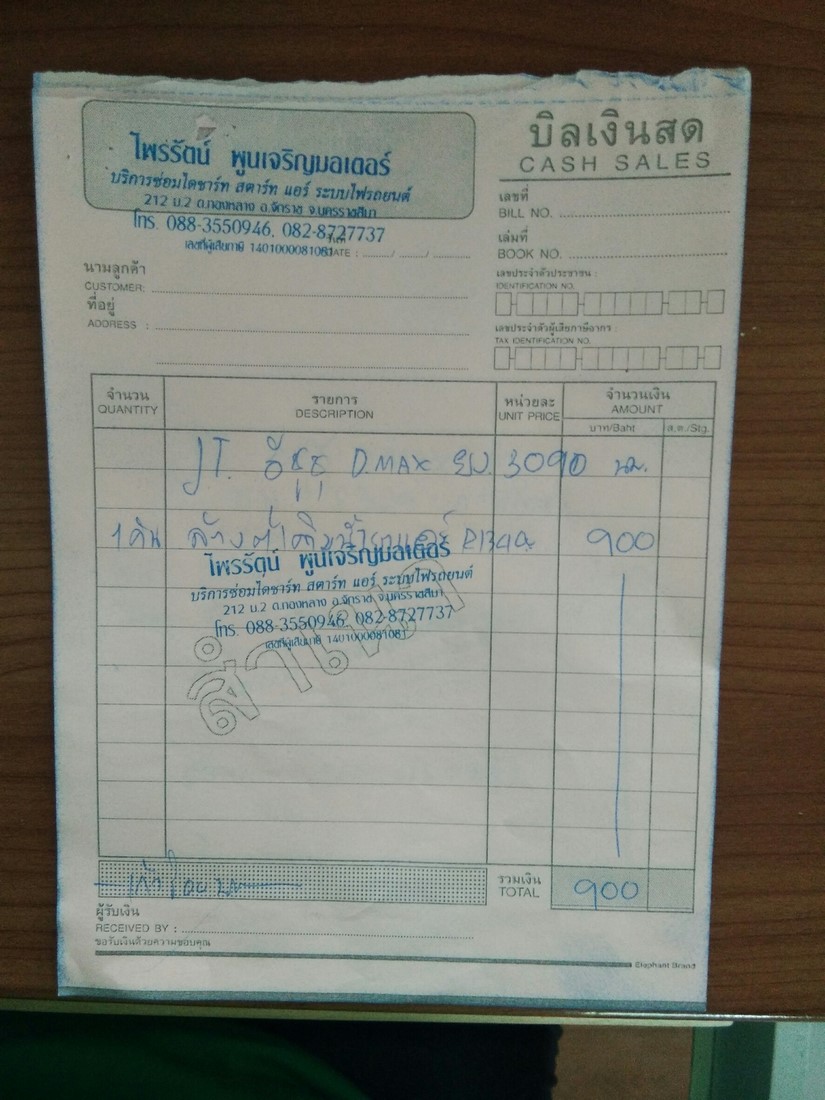 ไพรรัตน์ พูนเจริญมอเตอร์
บริการซ่อมไดชาร์ท สตาร์ท แอร์ ระบบไฟรถยนต์
212 ม.2 ต.ทองหลาง อ.จักราช จ.นครราชสีมา
โทร. 088-3550946, 082-8727737
เลขที่ผู้เสียภาษี 1401000081081
DATE : ....../....../......
บิลเงินสด
CASH SALES
เลขที่
BILL NO.
เล่มที่
BOOK NO.
นามลูกค้า
CUSTOMER:
ที่อยู่
ADDRESS :
เลขประจำตัวประชาชน :
IDENTIFICATION NO.
เลขประจำตัวผู้เสียภาษีอากร :
TAX IDENTIFICATION NO.
จำนวน
QUANTITY
รายการ
DESCRIPTION
หน่วยละ
UNIT PRICE
จำนวนเงิน
AMOUNT
บาท/Baht ส.ต./Stg.
อีซูซุ D.MAX 3090 นม.
1 คัน ล้างตู้เติมน้ำยาแอร์ R134a 900
ไพรรัตน์ พูนเจริญมอเตอร์
บริการซ่อมไดชาร์ท สตาร์ท แอร์ ระบบไฟรถยนต์
212 ม.2 ต.ทองหลาง อ.จักราช จ.นครราชสีมา
โทร. 088-3550946, 082-8727737
เลขที่ผู้เสียภาษี 1401000081081
สำเนา
เก้าร้อยบาท
รวมเงิน
TOTAL
900
ผู้รับเงิน
RECEIVED BY :
ขอรับเงินด้วยความขอบคุณ
Elephant Brand